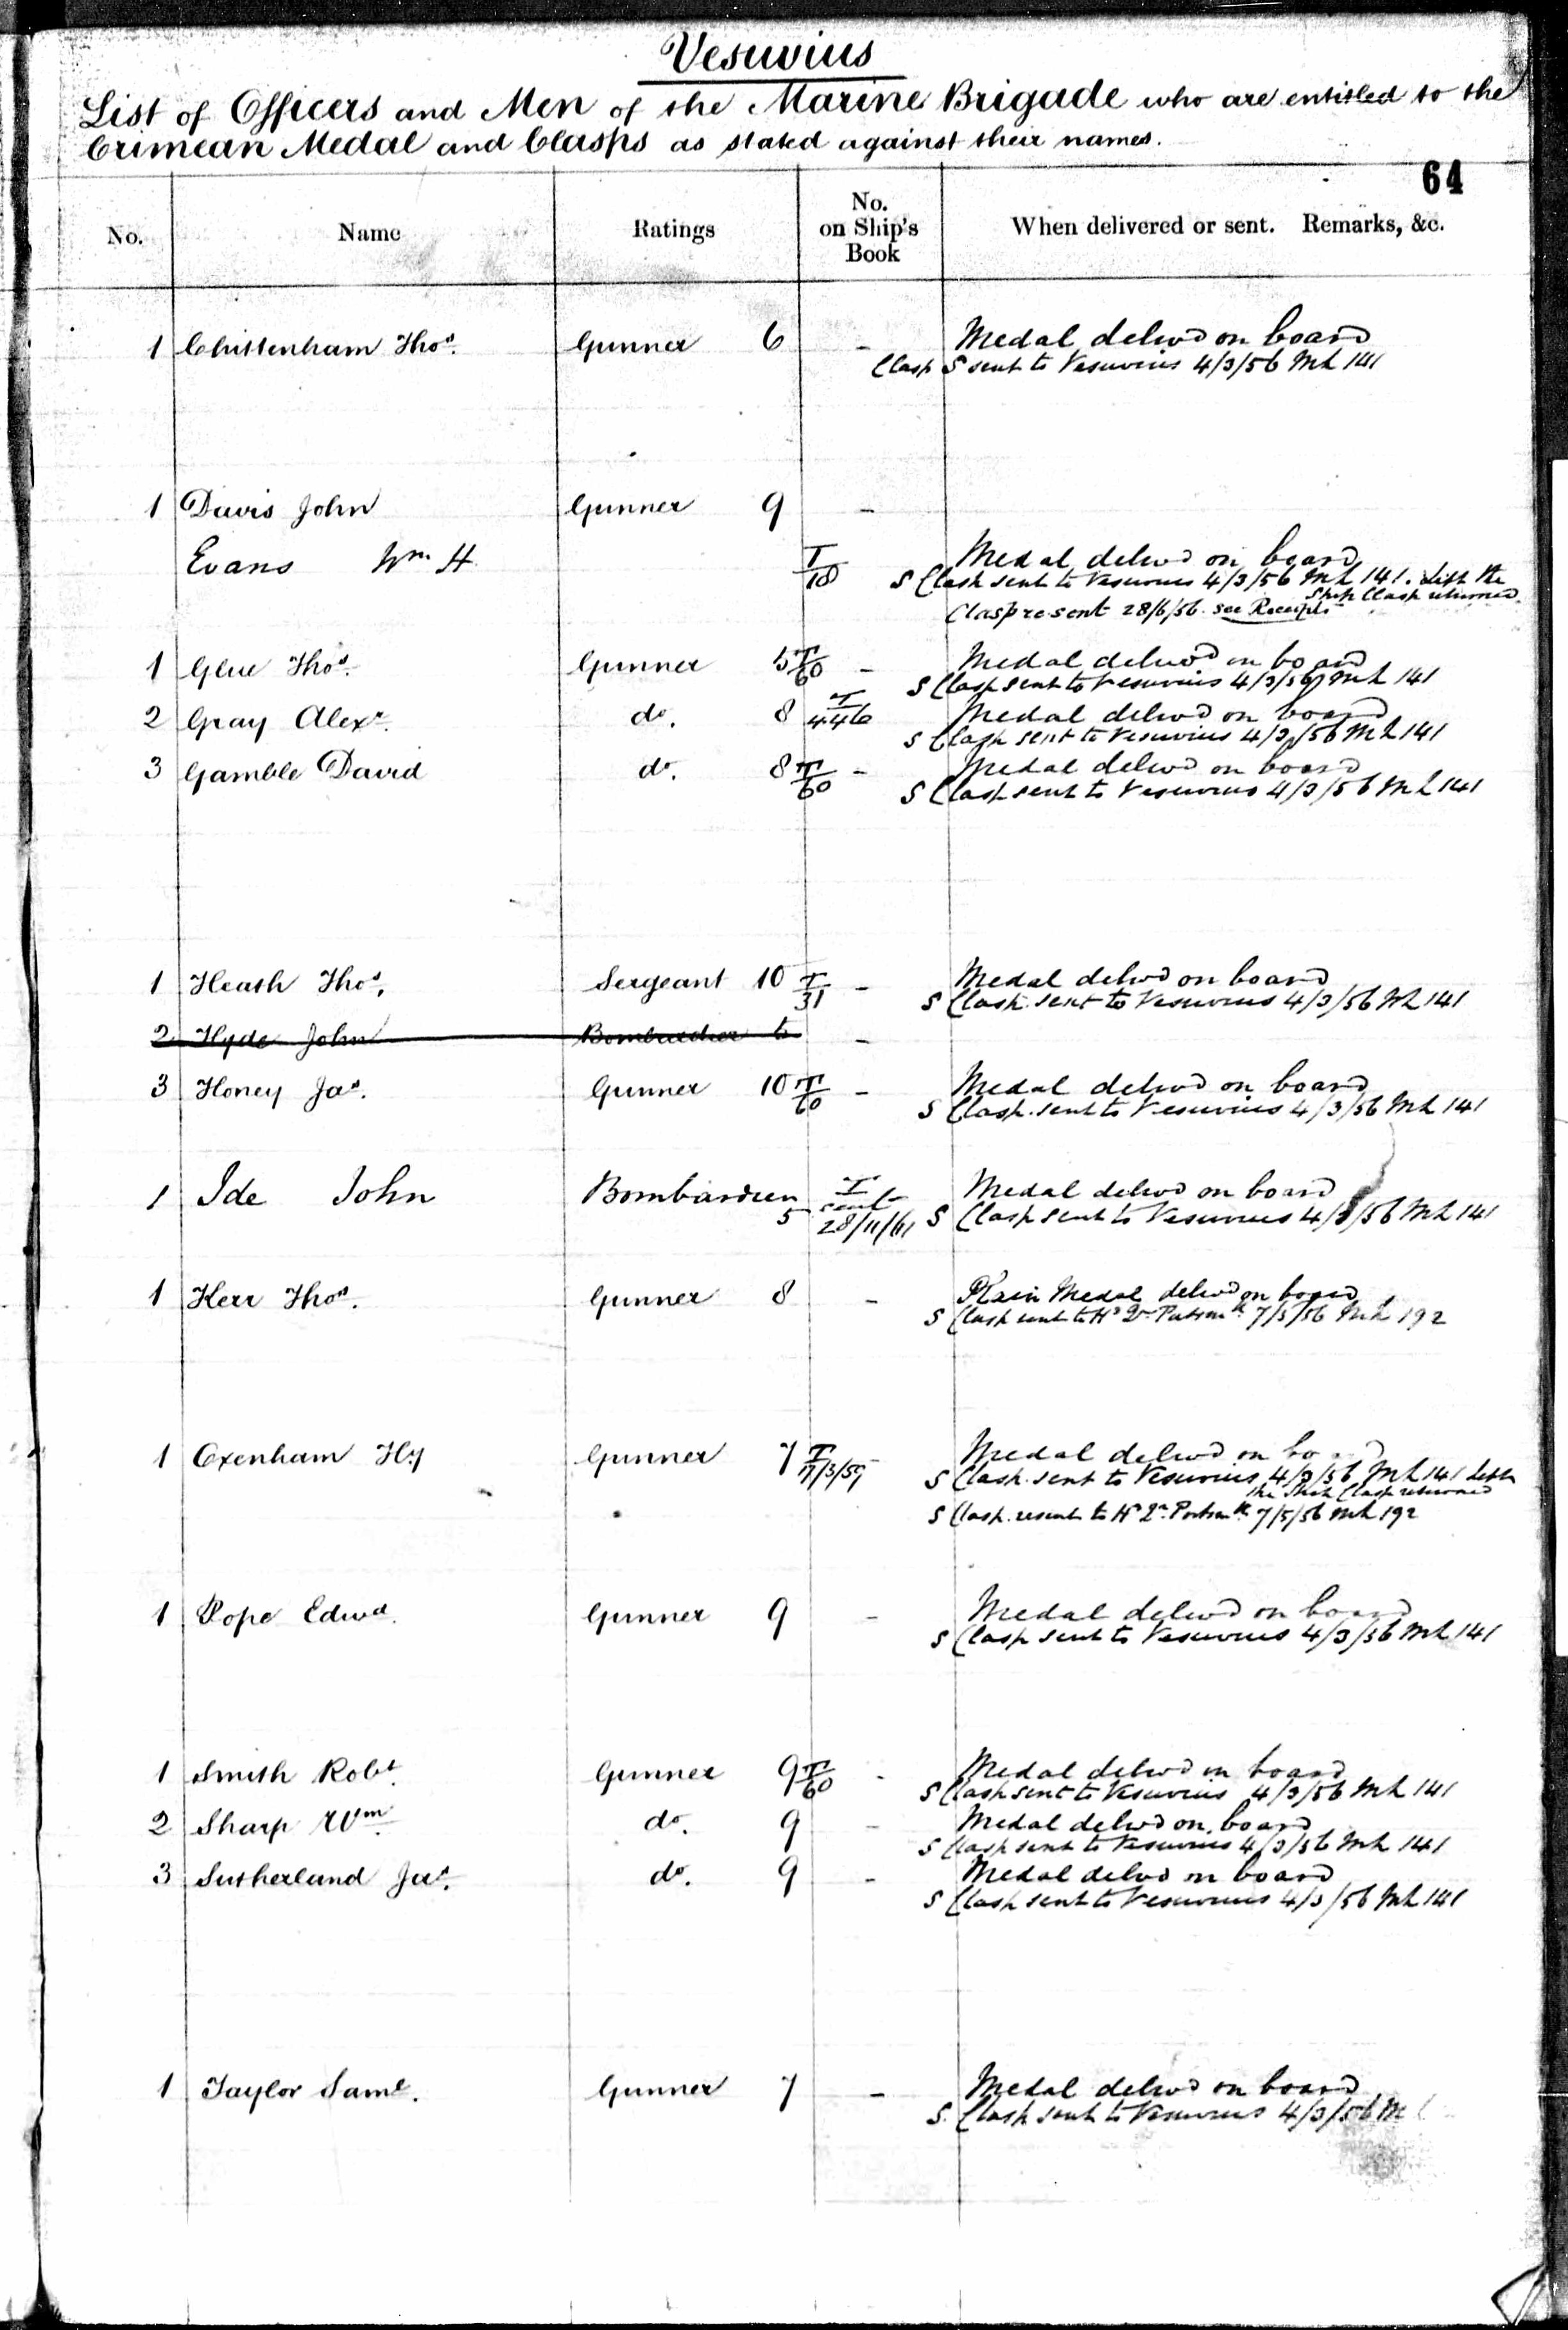 Vesuvius
List of Officers and Men of the Marine Brigade who are entitled to the
Crimean Medal and Clasps as stated against their names.
64
No. Name Ratings No. on Ship's Book When delivered or sent. Remarks, &c.
1 Chittenham Thos. Gunner 6 - Medal delivd on board
Clasp S sent to Vesuvius 4/3/56 ML 141
1 Davis John Gunner 9 -
Evans Wm. H. T/18 Medal delivd on board
S Clasp sent to Vesuvius 4/3/56 ML 141. Left the
Ship Clasp returned
Clasp resent 28/6/56. see Receipts
1 Glue Thos. Gunner 5 T/60 - Medal delivd on board
S Clasp sent to Vesuvius 4/3/56 ML 141
2 Gray Alexr. do. 8 T/446 Medal delivd on board
S Clasp sent to Vesuvius 4/3/56 ML 141
3 Gamble David do. 8 T/60 - Medal delivd on board
S Clasp sent to Vesuvius 4/3/56 ML 141
1 Heath Thos. Sergeant 10 T/31 - Medal delivd on board
S Clasp sent to Vesuvius 4/3/56 ML 141
2 Hyde John Bombardier 6 -
3 Honey Jas. Gunner 10 T/60 - Medal delivd on board
S Clasp sent to Vesuvius 4/3/56 ML 141
1 Ide John Bombardier 5 T sent 28/11/61 Medal delivd on board
S Clasp sent to Vesuvius 4/3/56 ML 141
1 Kerr Thos. Gunner 8 - Plain Medal delivd on board
S Clasp sent to Hd Qr Portsmth 7/5/56 ML 192
1 Oxenham Hy Gunner 7 T 17/3/59 Medal delivd on board
S Clasp sent to Vesuvius 4/3/56 ML 141 Left
the Ship Clasp returned
S Clasp resent to Hd Qr Portsmth 7/5/56 ML 192
1 Pope Edwd. Gunner 9 - Medal delivd on board
S Clasp sent to Vesuvius 4/3/56 ML 141
1 Smith Robt. Gunner 9 T/60 - Medal delivd on board
S Clasp sent to Vesuvius 4/3/56 ML 141
2 Sharp Wm. do. 9 - Medal delivd on board
S Clasp sent to Vesuvius 4/3/56 ML 141
3 Sutherland Jas. do. 9 - Medal delivd on board
S Clasp sent to Vesuvius 4/3/56 ML 141
1 Taylor Saml. Gunner 7 - Medal delivd on board
S. Clasp sent to Vesuvius 4/3/56 M